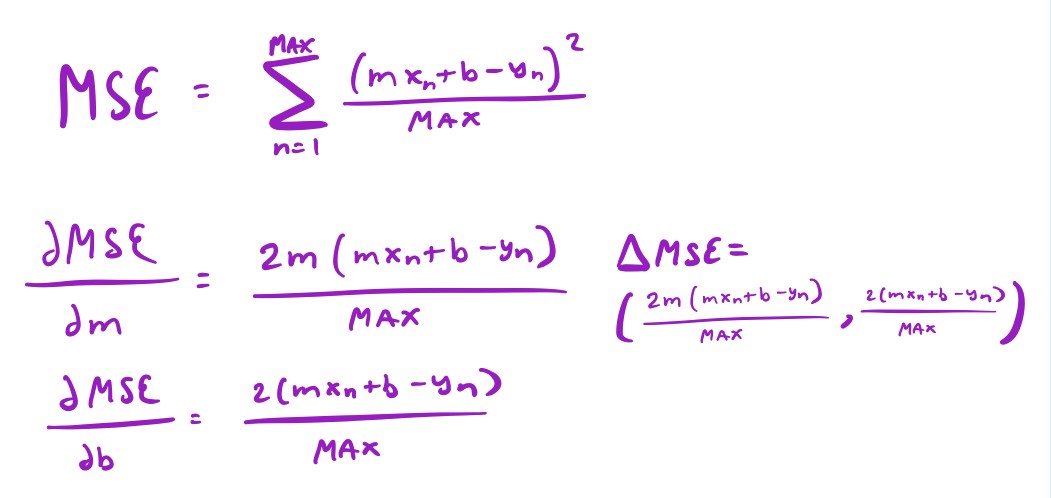 MSE = \sum_{n=1}^{MAX} \frac{(mx_n+b-y_n)^2}{MAX}
\frac{∂MSE}{∂m} = \frac{2m(mx_n+b-y_n)}{MAX}
ΔMSE =
\left(\frac{2m(mx_n+b-y_n)}{MAX}, \frac{2(mx_n+b-y_n)}{MAX}\right)
\frac{∂MSE}{∂b} = \frac{2(mx_n+b-y_n)}{MAX}